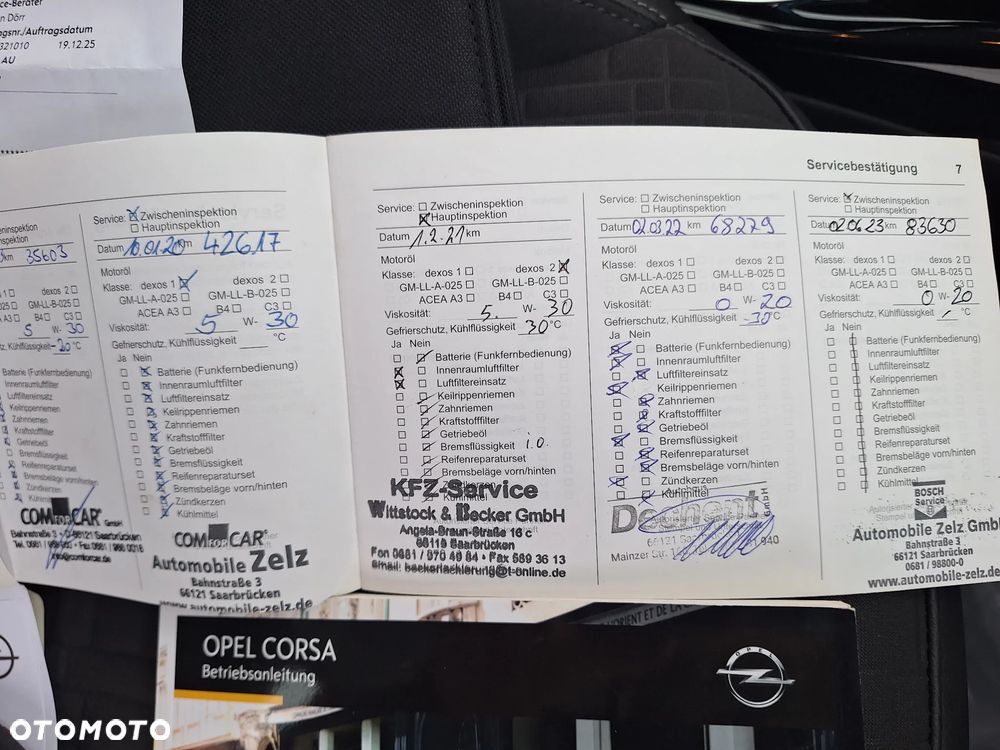 ce-Berater
n Dörr
gsnr./Auftragsdatum
321010 19.12.25
AU
Servicebestätigung 7
km 35603
5 W- 30
-20°C
Batterie (Funkfernbedienung)
Innenraumluftfilter
Luftfiltereinsatz
Keilrippenriemen
Zahnriemen
Kraftstofffilter
Getriebeöl
Bremsflüssigkeit
Reifenreparaturset
Bremsbeläge vorn/hinten
Zündkerzen
Kühlmittel
COM FOR CAR GmbH
Bahnstraße 3
Service: Zwischeninspektion
Hauptinspektion
Datum 10.01.20 km 42617
Motoröl
Klasse: dexos 1 dexos 2
GM-LL-A-025 GM-LL-B-025
ACEA A3 B4 C3
Viskosität: 5 W- 30
Gefrierschutz, Kühlflüssigkeit °C
Ja Nein
Batterie (Funkfernbedienung)
Innenraumluftfilter
Luftfiltereinsatz
Keilrippenriemen
Zahnriemen
Kraftstofffilter
Getriebeöl
Bremsflüssigkeit
Reifenreparaturset
Bremsbeläge vorn/hinten
Zündkerzen
Kühlmittel
COM FOR CAR
Automobile Zelz
Bahnstraße 3
66121 Saarbrücken
www.automobile-zelz.de
Service: Zwischeninspektion
Hauptinspektion
Datum 1.2.21 km
Motoröl
Klasse: dexos 1 dexos 2
GM-LL-A-025 GM-LL-B-025
ACEA A3 B4 C3
Viskosität: 5. W- 30
Gefrierschutz, Kühlflüssigkeit 30 °C
Ja Nein
Batterie (Funkfernbedienung)
Innenraumluftfilter
Luftfiltereinsatz
Keilrippenriemen
Zahnriemen
Kraftstofffilter
Getriebeöl
Bremsflüssigkeit i.o.
Reifenreparaturset
Bremsbeläge vorn/hinten
Zündkerzen
KFZ-Service
Wittstock & Becker GmbH
Angela-Braun-Straße 16 c
66115 Saarbrücken
Fon 0681 / 970 40 84 • Fax 589 36 13
email: beckerlackierung@t-online.de
Service: Zwischeninspektion
Hauptinspektion
Datum 02.03.22 km 68279
Motoröl
Klasse: dexos 1 dexos 2
GM-LL-A-025 GM-LL-B-025
ACEA A3 B4 C3
Viskosität: 0 W- 20
Gefrierschutz, Kühlflüssigkeit -30 °C
Ja Nein
Batterie (Funkfernbedienung)
Innenraumluftfilter
Luftfiltereinsatz
Keilrippenriemen
Zahnriemen
Kraftstofffilter
Getriebeöl
Bremsflüssigkeit
Reifenreparaturset
Bremsbeläge vorn/hinten
Zündkerzen
Kühlmittel
66121 Saarbrücken
Mainzer Str.
Service: Zwischeninspektion
Hauptinspektion
Datum 02.06.23 km 83630
Motoröl
Klasse: dexos 1 dexos 2
GM-LL-A-025 GM-LL-B-025
ACEA A3 B4 C3
Viskosität: 0 W- 20
Gefrierschutz, Kühlflüssigkeit - °C
Ja Nein
Batterie (Funkfernbedienung)
Innenraumluftfilter
Luftfiltereinsatz
Keilrippenriemen
Zahnriemen
Kraftstofffilter
Getriebeöl
Bremsflüssigkeit
Reifenreparaturset
Bremsbeläge vorn/hinten
Zündkerzen
Kühlmittel
BOSCH
Service
Automobile Zelz GmbH
Bahnstraße 3
66121 Saarbrücken
0681 / 98800-0
www.automobile-zelz.de
OPEL CORSA
Betriebsanleitung
OPEL
OTOMOTO